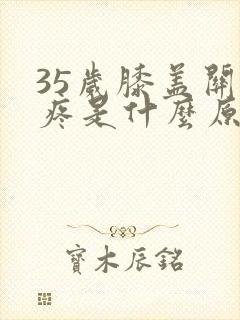 35歲膝盖關
疼是什麼原
寶木辰銘